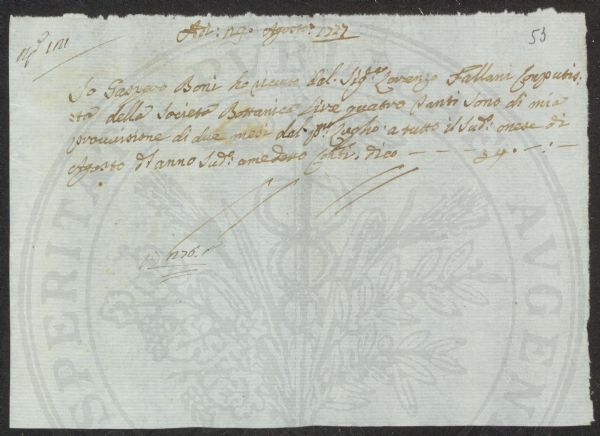 Adì: 29: Agosto: 1727
53
Nº 111
Io Gaspero Boni ho riceuto dal: Sig:re Lorenzo Fallani Computis:
sta della Società Bottanica Lire quatro Tanti sono di mia
provvisione di due mesi dal pº: Luglio a tutto il Sud: mese di
Agosto d'anno Sud: a me detto dico — — — £ 4. — . —
1726
PUB
SPERITA
AUGEN